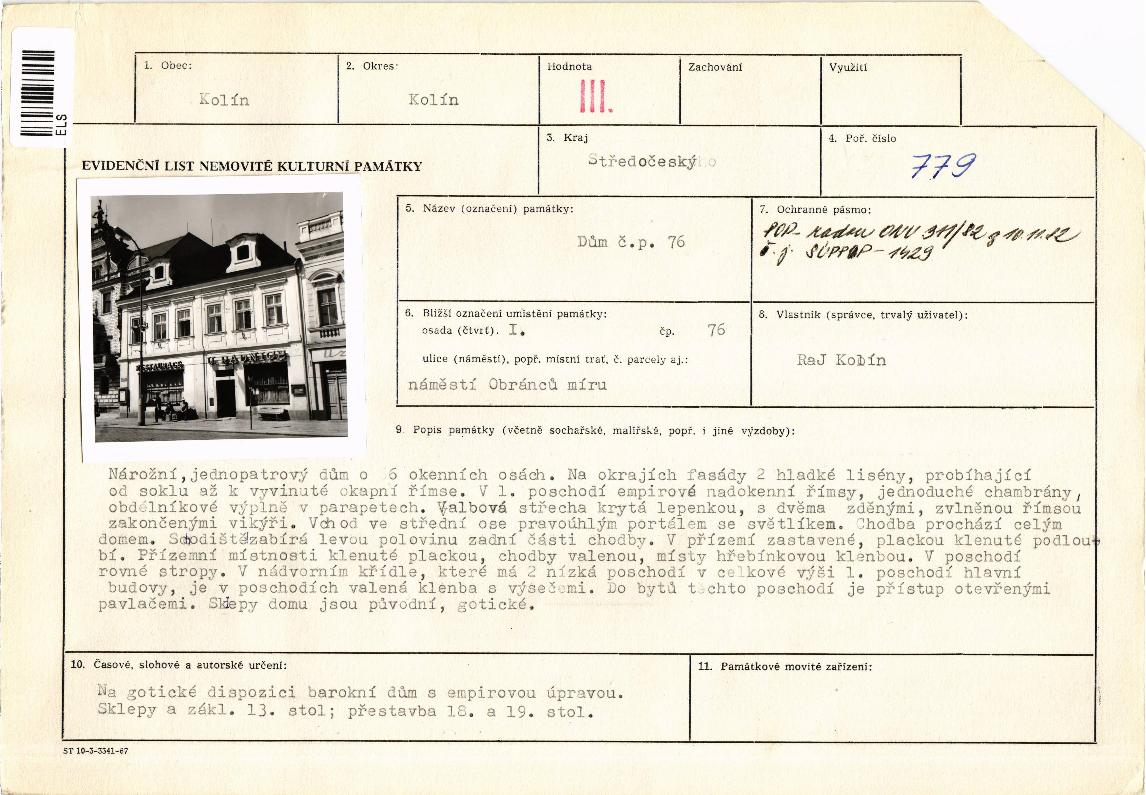 ELS
1. Obec:
Kolín
2. Okres:
Kolín
Hodnota
III.
Zachování
Využití
3. Kraj
Středočeský
4. Poř. číslo
779
EVIDENČNÍ LIST NEMOVITÉ KULTURNÍ PAMÁTKY
5. Název (označení) památky:
Dům č.p. 76
7. Ochranné pásmo:
POP- radou ONV 311/82 z 10.11.82
č. j. SÚPPOP - 1429
6. Bližší označení umístění památky:
osada (čtvrť). I. čp. 76
ulice (náměstí), popř. místní trať, č. parcely aj.:
náměstí Obránců míru
8. Vlastník (správce, trvalý uživatel):
RaJ Kolín
9. Popis památky (včetně sochařské, malířské, popř. i jiné výzdoby):
Nárožní,jednopatrový dům o 6 okenních osách. Na okrajích fasády 2 hladké lisény, probíhající
od soklu až k vyvinuté okapní římse. V 1. poschodí empirové nadokenní římsy, jednoduché chambrány,
obdélníkové výplně v parapetech. Valbová střecha krytá lepenkou, s dvěma zděnými, zvlněnou římsou
zakončenými vikýři. Vchod ve střední ose pravoúhlým portálem se světlíkem. Chodba prochází celým
domem. Schodiště zabírá levou polovinu zadní části chodby. V přízemí zastavené, plackou klenuté podlou-
bí. Přízemní místnosti klenuté plackou, chodby valenou, místy hřebínkovou klenbou. V poschodí
rovné stropy. V nádvorním křídle, které má 2 nízká poschodí v celkové výši 1. poschodí hlavní
budovy, je v poschodích valená klenba s výsečemi. Do bytů těchto poschodí je přístup otevřenými
pavlačemi. Sklepy domu jsou původní, gotické.
10. Časové, slohové a autorské určení:
Na gotické dispozici barokní dům s empirovou úpravou.
Sklepy a zákl. 13. stol; přestavba 18. a 19. stol.
11. Památkové movité zařízení:
ST 10-3-3341-67